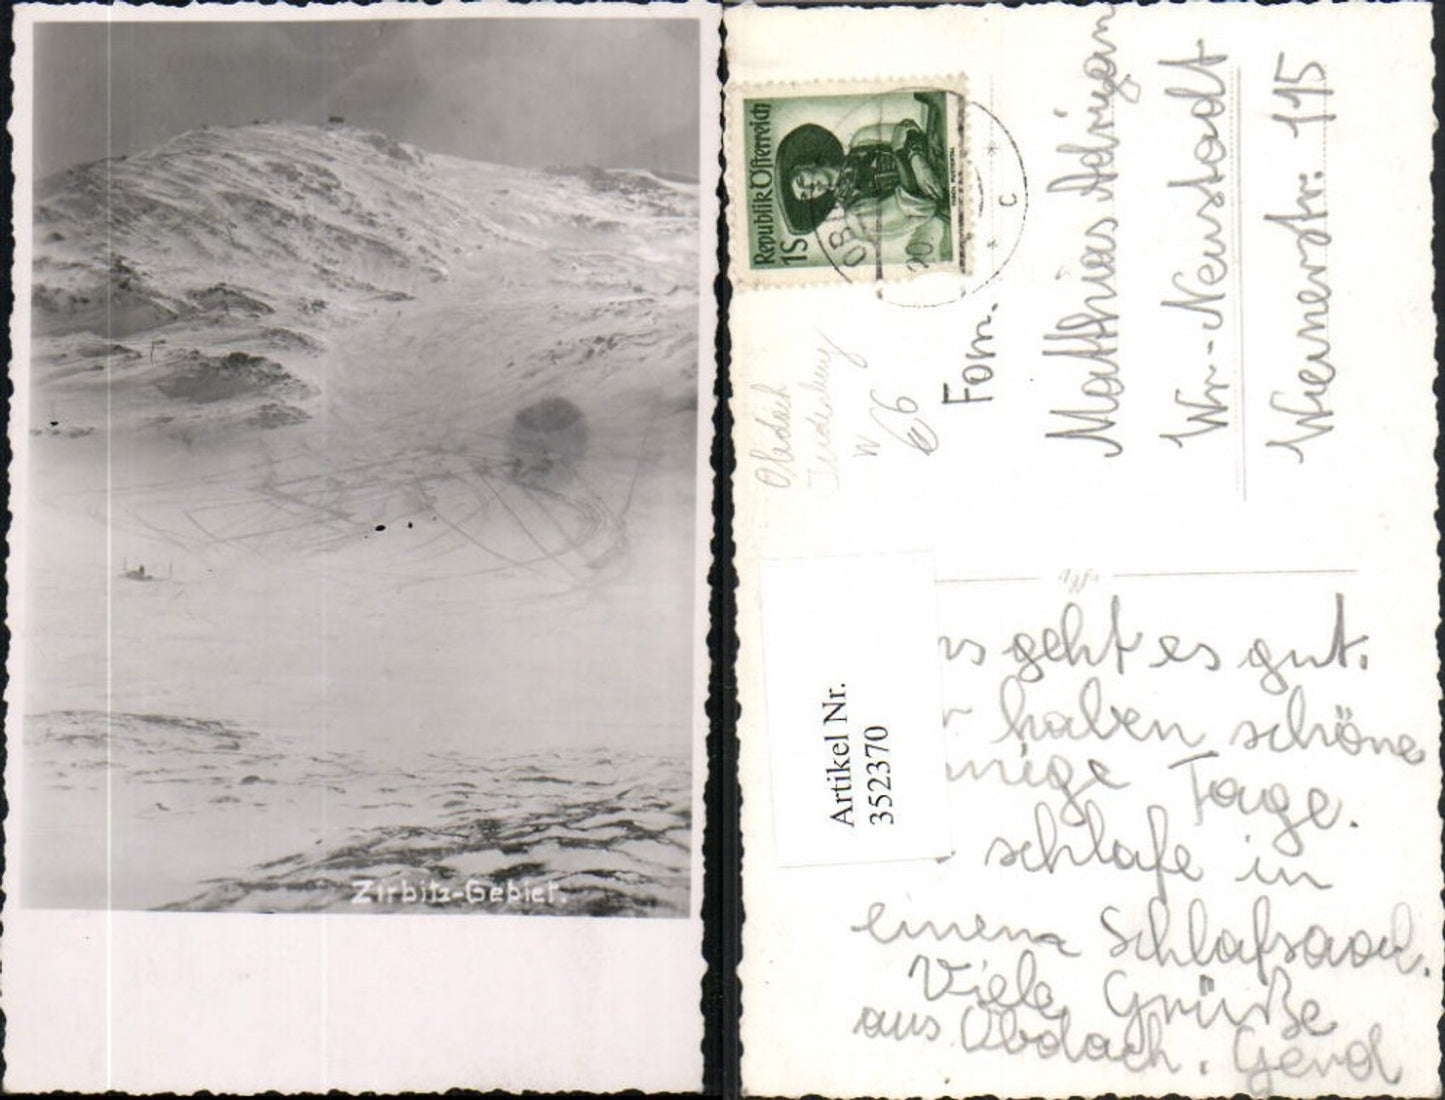 Zirbitz-Gebiet.
Republik Österreich
1S
OB
c
Obdach
Judenburg
N
66
Fam.
Matthias Adrigan
Wr.-Neustadt
Wienerstr. 115
Artikel Nr.
352370
ns geht es gut.
r haben schöne
nnige Tage.
schlafe in
einem Schlafsaal.
Viele Grüße
aus Obdach. Gerd